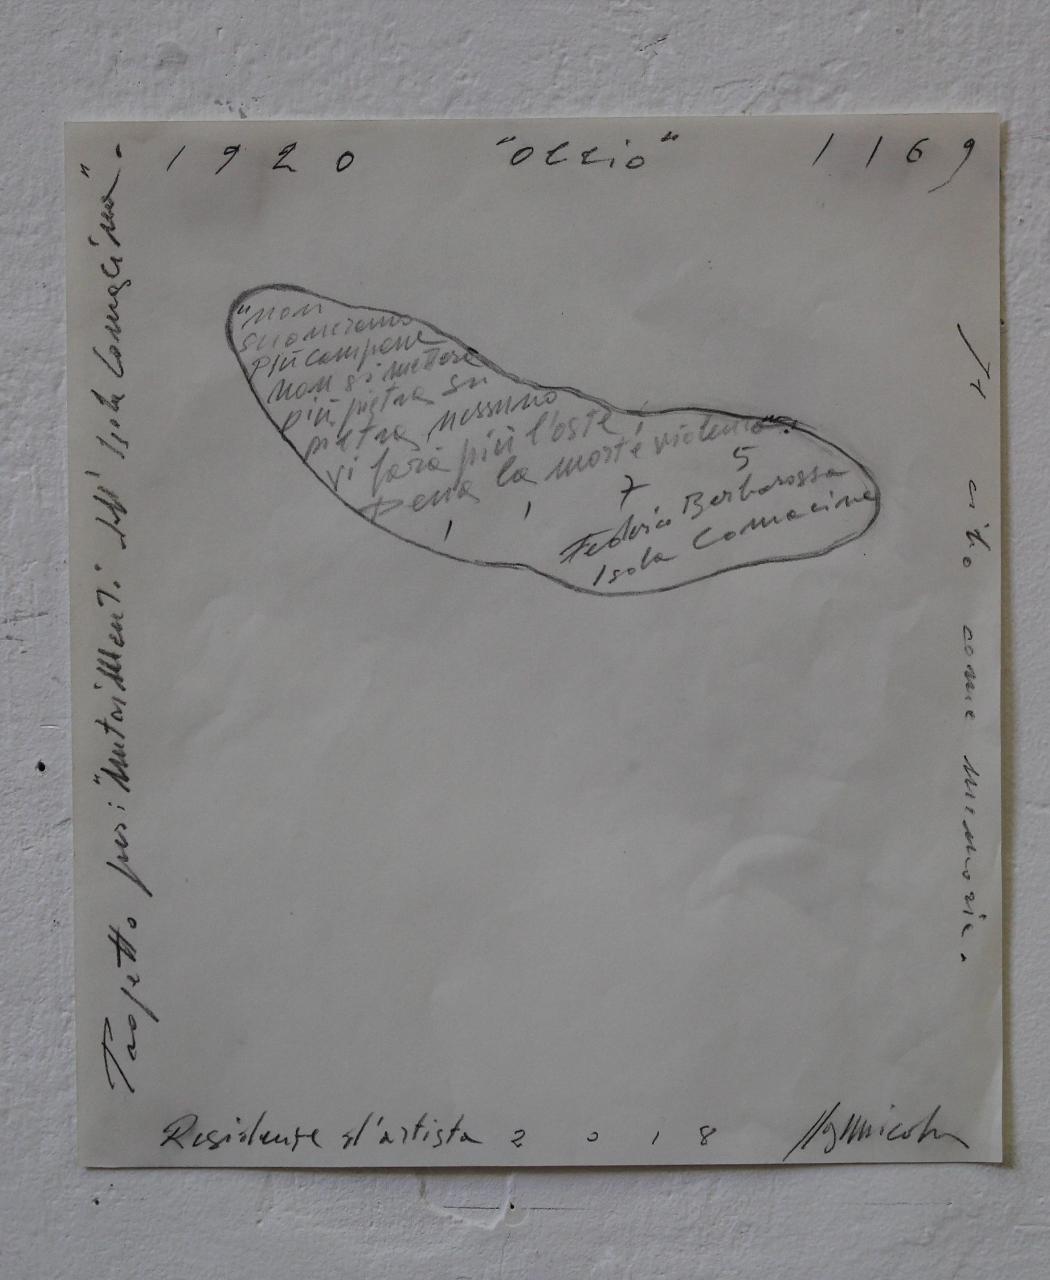 1920 "Olzio" 1169
Progetto per: "Mutamenti dell' Isola Comacina".
"non
suoneranno
più campane
non si metterà
più pietra su
pietra, nessuno
vi farà più l'oste,
pena la morte violenta".
1 1 7 5
Federico Barbarossa
Isola Comacina
Il cibo come memoria.
Residenze d'artista 2018